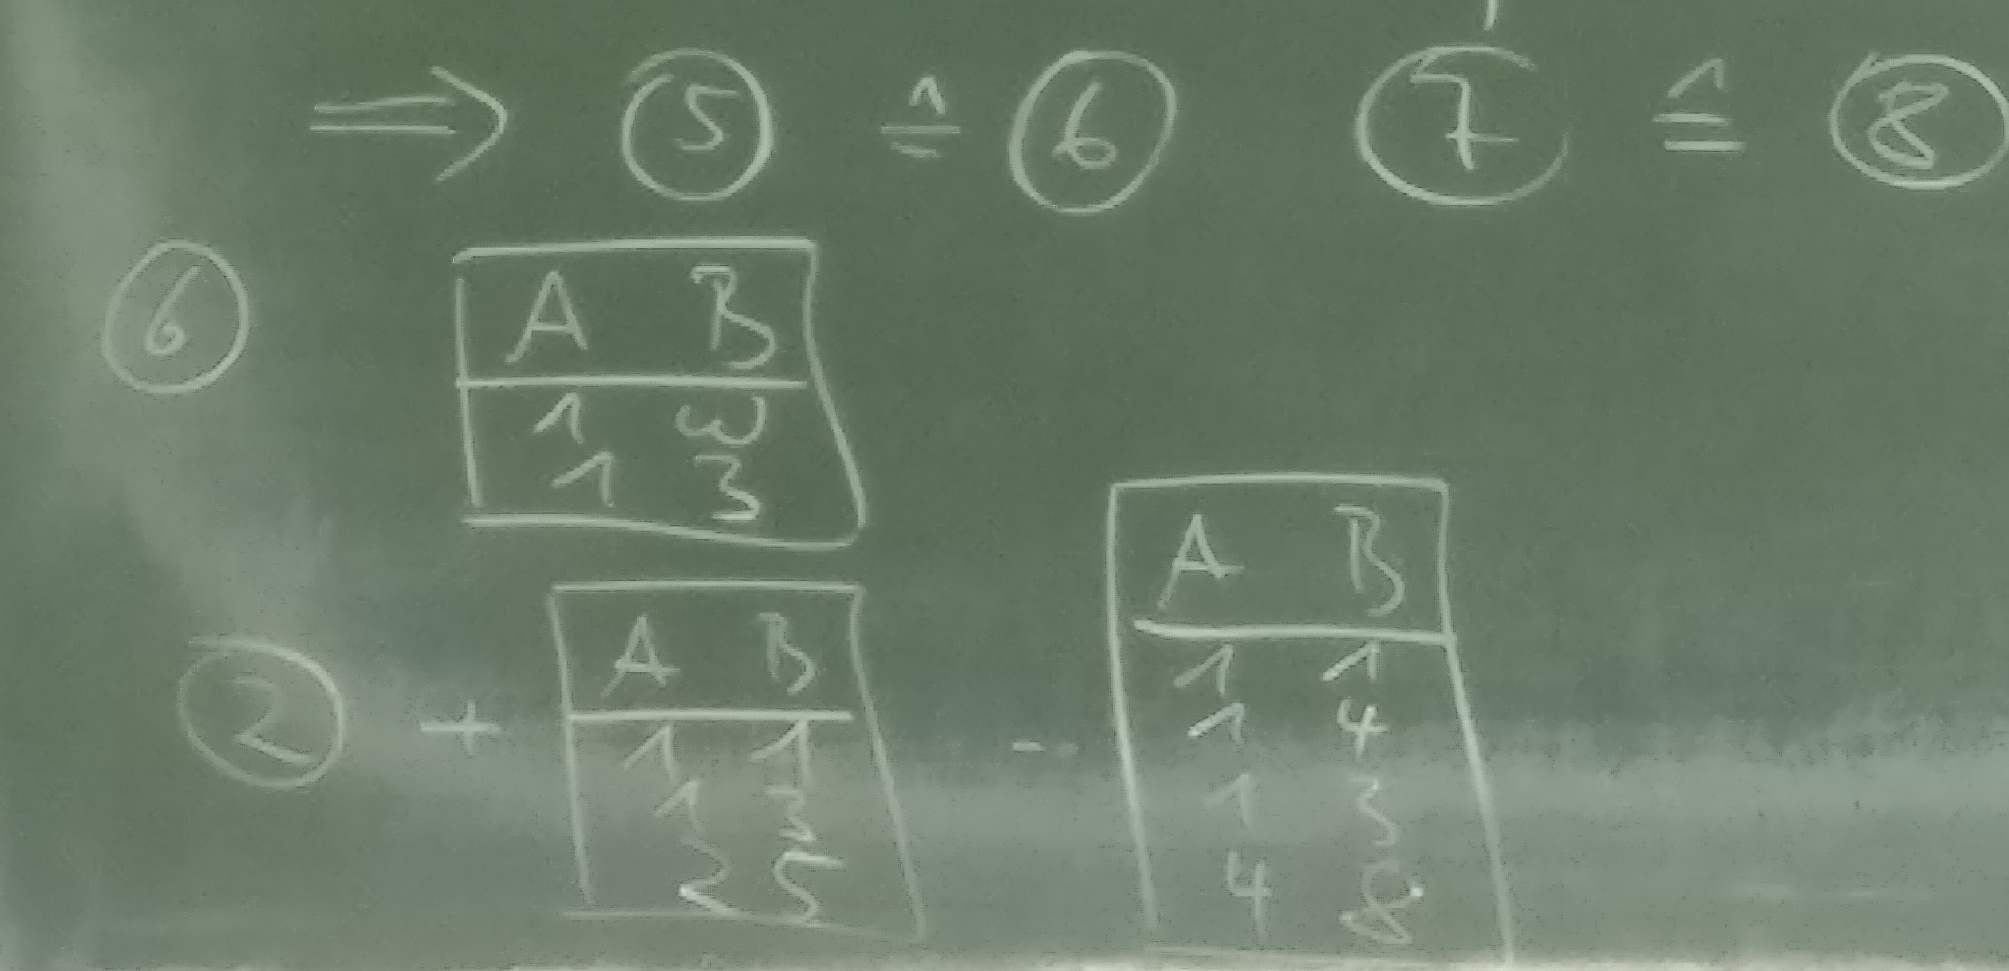 ⇒ ⑤ ≙ ⑥ ⑦ ≙ ⑧
⑥
A B
1 ω
1 3
② +
A B
1 1
1 3
2 5
-
A B
1 1
1 4
1 3
4 8